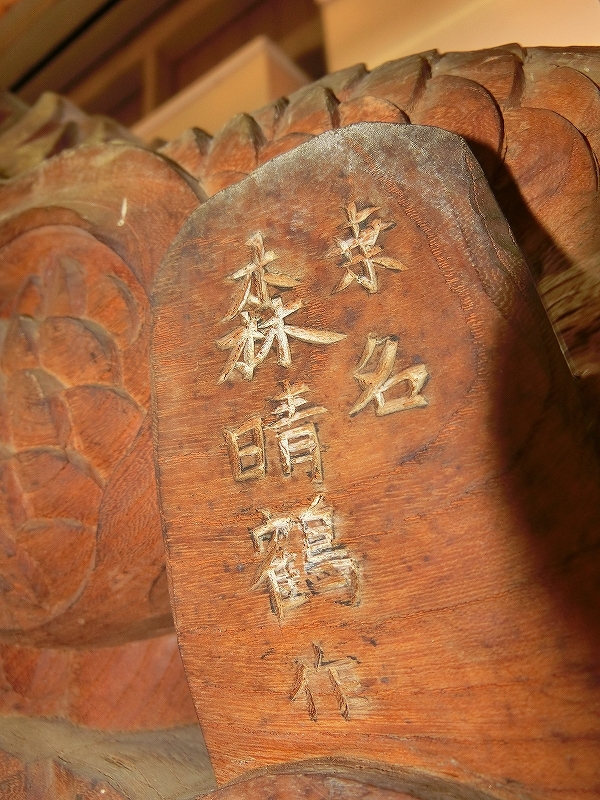 桒名
森晴鶴作